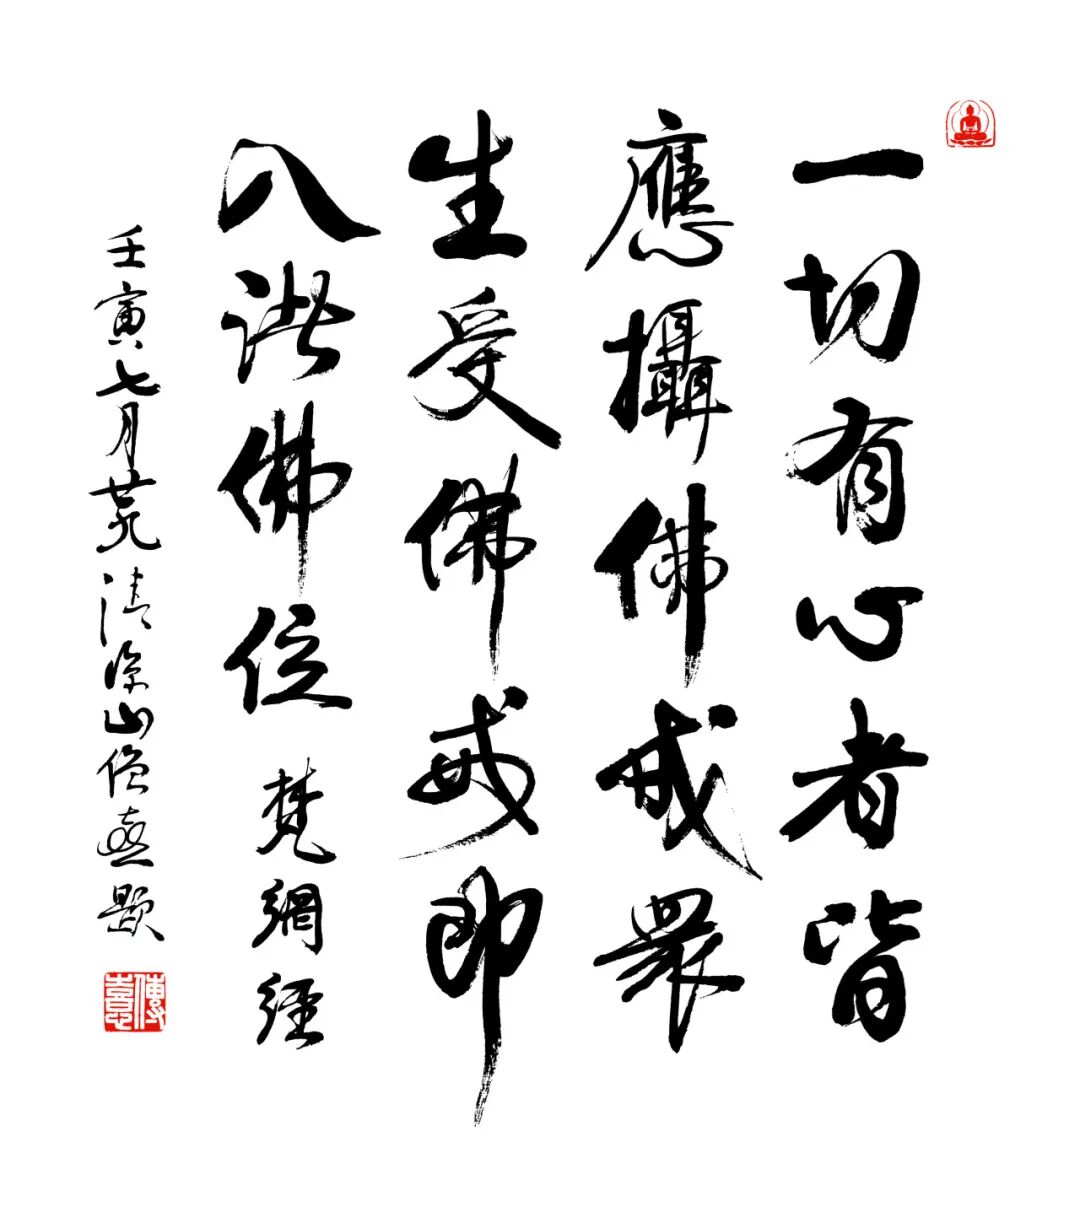 一切有心者皆
應攝佛戒衆
生受佛戒即
入諸佛位 梵網經
壬寅七月 清涼山僧憙題
傳憙